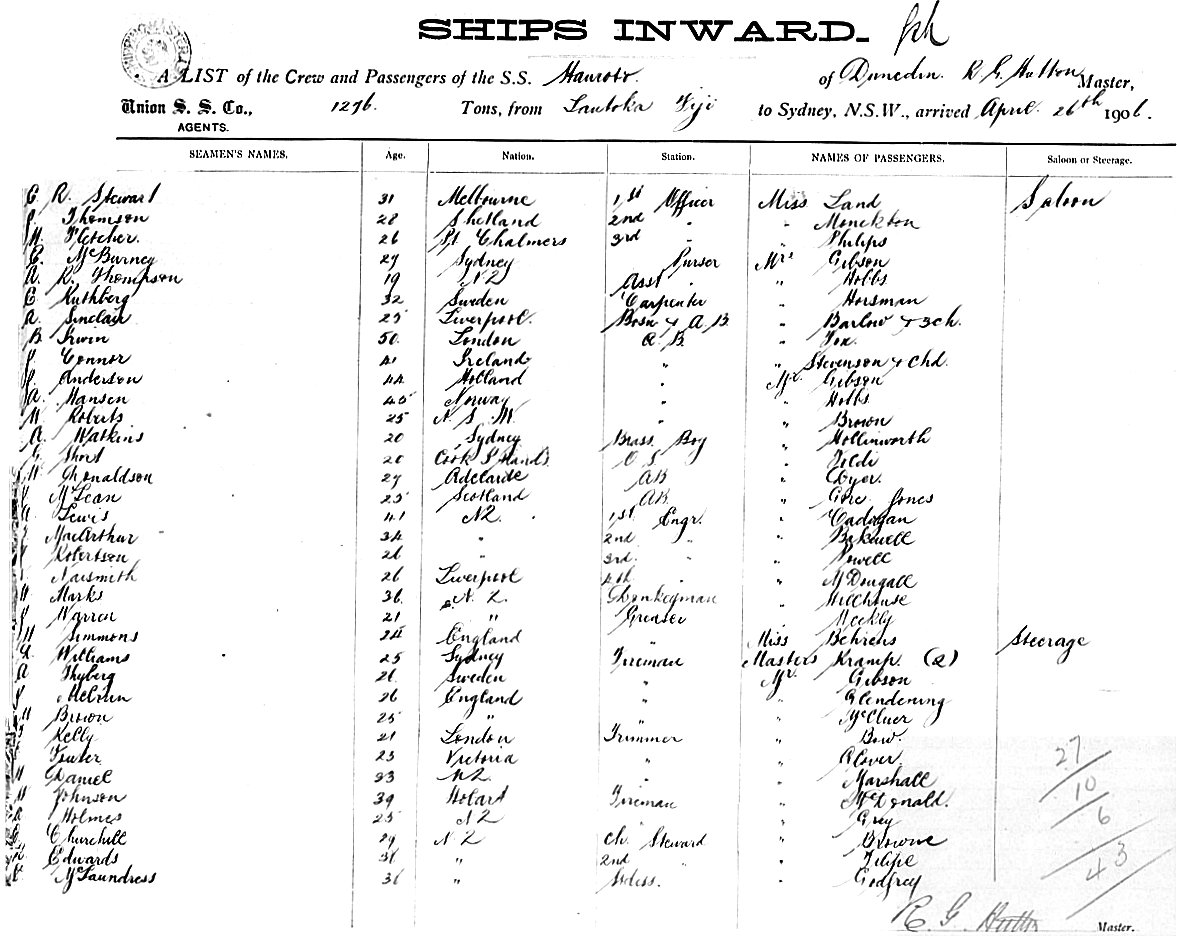 SHIPS INWARD.
A LIST of the Crew and Passengers of the S.S. Hauroto. of Dunedin. R. G. Hutton Master,
Union S. S. Co., 1276. Tons, from Lautoka Fiji to Sydney, N.S.W., arrived April. 26th 1906.
AGENTS.
SEAMEN'S NAMES. Age. Nation. Station. NAMES OF PASSENGERS. Saloon or Steerage.
C. R. Stewart 31 Melbourne 1st Officer Miss Land Saloon
J. Thomson 28 Shetland 2nd " " Monckton
Fletcher. 26 Pt Chalmers 3rd " " Philips
C. McBurney 27 Sydney Purser Mrs Gibson
A. R. Thompson 19 NZ Asst " " Hobbs
C Ruthberg 32 Sweden Carpenter " Horsman
A Sinclair 25 Liverpool. Bosn & A.B. " Barlow & 3 ch.
B. Irwin 50. London A.B. " Fox.
J. Connor 41 Ireland " " Stevenson & Chd.
Anderson 44 Holland " Mr. Gibson
A. Hansen 45 Norway " " Hobbs
W Roberts 25 N S W. " " Brown
A. Watkins 20 Sydney Brass Boy " Hollinworth
G. Short 20 Cook Islands O.S. "
Donaldson 27 Adelaide AB " Dyer.
McLean 25 Scotland AB " Gore Jones
Lewis 41 NZ. 1st Engr. " Cadogan
MacArthur 34 " 2nd " " Bakewell
Robertson 26 " 3rd. " " Powell
Naismith 26 Liverpool 4th " " McDougall
Marks 36. N.Z. Donkeyman " Millhouse
Warren 21 " Greaser " Weekly
Simmons 24 England " Miss Behrens Steerage
Williams 25 Sydney Fireman Masters Kramp. (2)
A Thyberg 26. Sweden " Mr. Gibson
26 England " " Glendening
Brown 25 " " " McCluer
Kelly 21 London Trimmer " Bow.
23 Victoria " " Glover.
Daniel 33 NZ. " " Marshall
Johnson 39 Hobart Fireman " McDonald.
Holmes 25 NZ " " Grey
Churchill 29 NZ Ch. Steward " Browne
Edwards 31 " 2nd " " Filipe
36 " Stdess. " Godfrey
27
10
6
43
R. G. Hutton Master.